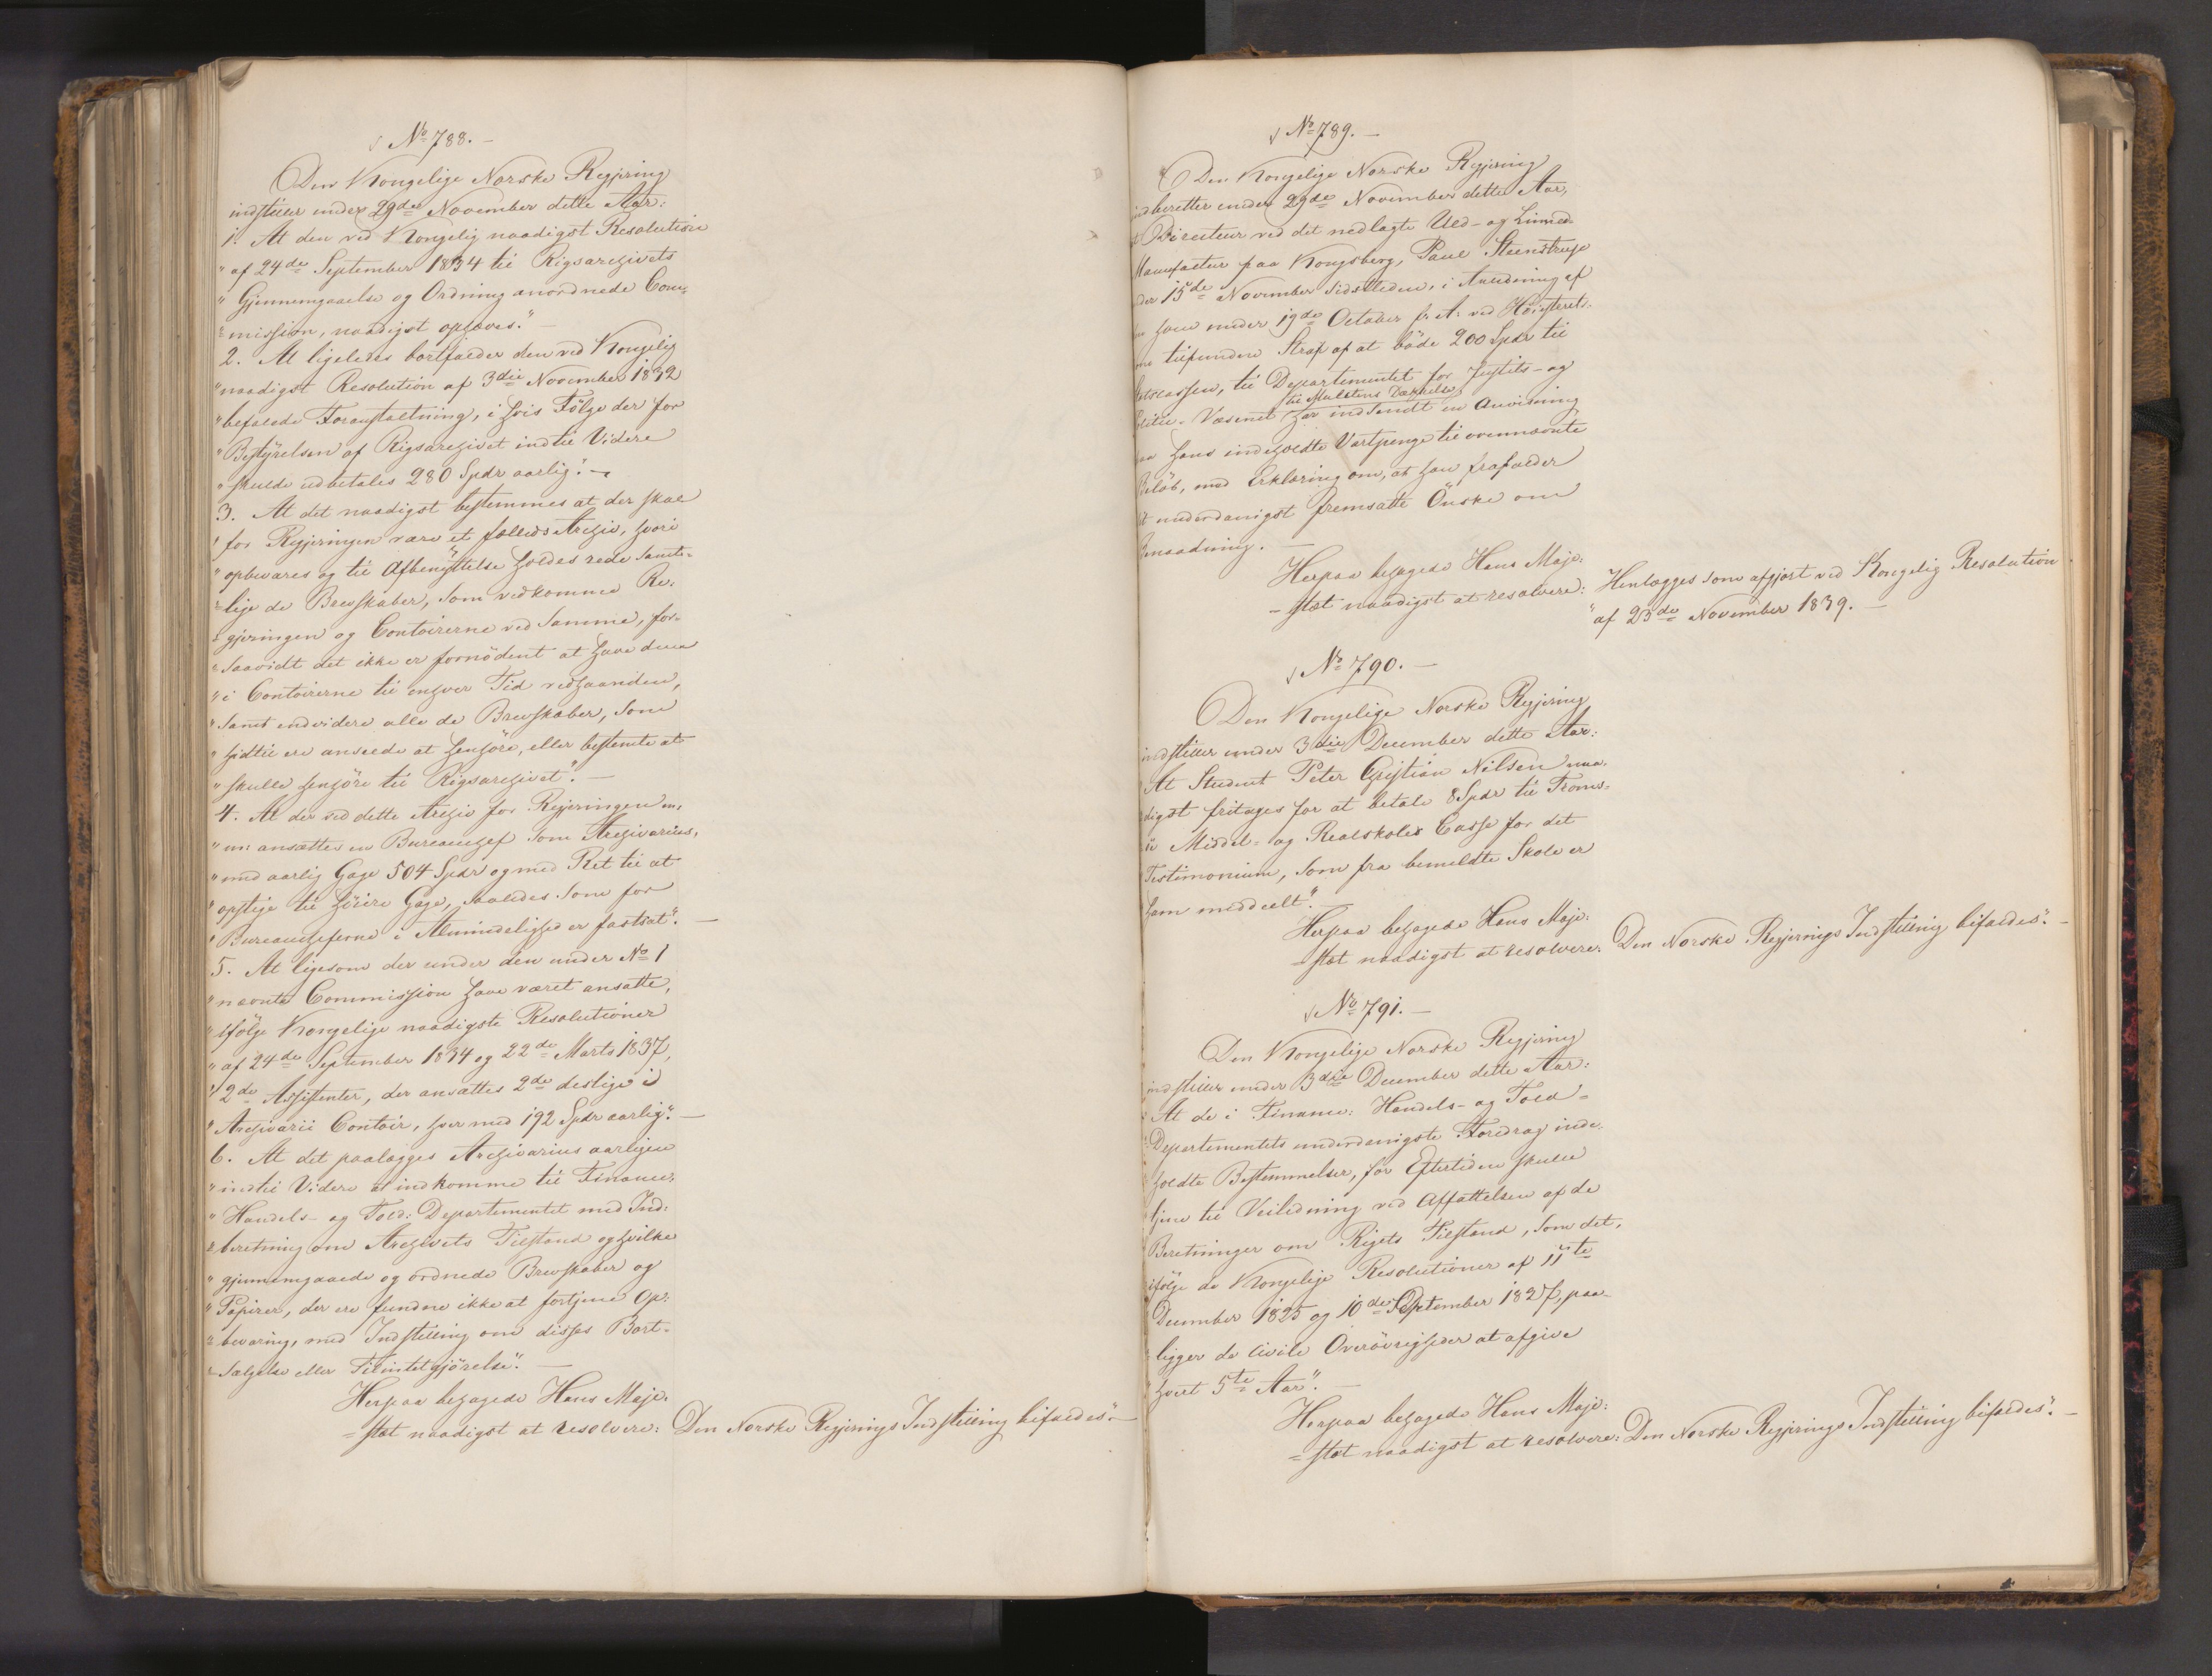 No 788. –
Den Kongelige Norske Regjering
indstiller under 29de November dette Aar:
1. At den ved Kongelig naadigst Resolution
"af 24de September 1834 til Rigsarchivets
"Gjennemgaaelse og Ordning anordnede Com=
"=mission, naadigst ophæves." –
2. At ligeledes bortfalder den ved Kongelig
"naadigst Resolution af 3die November 1832
"befalede Foranstaltning, i hvis Følge der for
"Bestyrelsen af Rigsarchivet indtil Videre
"skulde udbetales 280 Spdr aarlig." –
3. At det naadigst bestemmes at der skal
"for Regjeringen være et fælleds Archiv, hvori
"opbevares og til Afbenyttelse holdes rede samt=
"=lige de Brevskaber, som vedkomme Re=
"=gjeringen og Contoirerne ved samme, for=
"=saavidt det ikke er fornødent at have dem
"i Contoirerne til enhver Tid vedhaanden,
"samt endvidere alle de Brevskaber, som
"hidtil ere anseede at henhøre, eller bestemte at
"skulle henhøre til Rigsarchivet". –
4. At der ved dette Archiv for Regjeringen m.
"m: ansættes en Bureauchef som Archivarius,
"med aarlig Gage 504 Spdr og med Ret til at
"opstige til høiere Gage, saaledes som for
"Bureaucheferne i Almindelighed er fastsat". –
5. At ligesom der under den under No 1
"nævnte Commission have været ansatte,
"ifølge Kongelige naadigste Resolutioner
"af 24de September 1834 og 22de Marts 1837,
"2de Assistenter, der ansættes 2de deslige i
"Archivarii Contoir, hver med 192 Spdr aarlig". –
6. At det paalægges Archivarius aarligen
"indtil Videre at indkomme til Finance=
"Handels- og Told: Departementet med Ind=
"=beretning om Archivets Tilstand og hvilke
"gjennemgaaede og ordnede Brevskaber og
"Papirer, der ere fundne ikke at fortjene Op=
"=bevaring, med Indstilling om disses Bort=
"=sælgelse eller Tilintetgjørelse". –
Herpaa behagede Hans Maje=
=stæt naadigst at resolvere: Den Norske Regjerings Indstilling bifaldes". –
No 789. –
Den Kongelige Norske Regjering
indberetter under 29de November dette Aar,
at Directeur ved det nedlagte Uld- og Linned=
Manufactur paa Kongsberg, Paul Steenstrup
under 15de November sidstleden, i Anledning af
den ham under 19de October f. A. ved Høiesterets
Dom tilfundne Straf af at bøde 200 Spdr til
Statscassen, til Departementet for Justits- og
til Mulctens Dækkelse
Politie-Væsenet har indsendt en Anvisning
paa hans indeholdte Vartpenge til ovennævnte
Beløb, med Erklæring om, at han frafalder
et underdanigst fremsatte Ønske om
Benaadning. –
Herpaa behagede Hans Maje=
=stæt naadigst at resolvere: Henlægges som afgjort ved Kongelig Resolution
"af 23de November 1839. –
No 790. –
Den Kongelige Norske Regjering
indstiller under 3die December dette Aar:
At Student Peter Christian Nilsen naa=
digst fritages for at betale 8 Spdr til Troms=
ø Middel- og Realskoles Casse for det
Testimonium, som fra bemeldte Skole er
ham meddeelt". –
Herpaa behagede Hans Maje=
=stæt naadigst at resolvere: Den Norske Regjerings Indstilling bifaldes". –
No 791. –
Den Kongelige Norske Regjering
indstiller under 3die December dette Aar:
At de i Finance: Handels- og Told=
Departementets underdanigste Foredrag inde=
holdte Bestemmelser, for Eftertiden skulle
tjene til Veiledning ved Affattelsen af de
Beretninger om Rigets Tilstand, som det,
ifølge de Kongelige Resolutioner af 11te
December 1825 og 10de September 1827, paa=
ligger de civile Overøvrigheder at afgive
hvert 5te Aar". –
Herpaa behagede Hans Maje=
=stæt naadigst at resolvere: Den Norske Regjerings Indstilling bifaldes". –